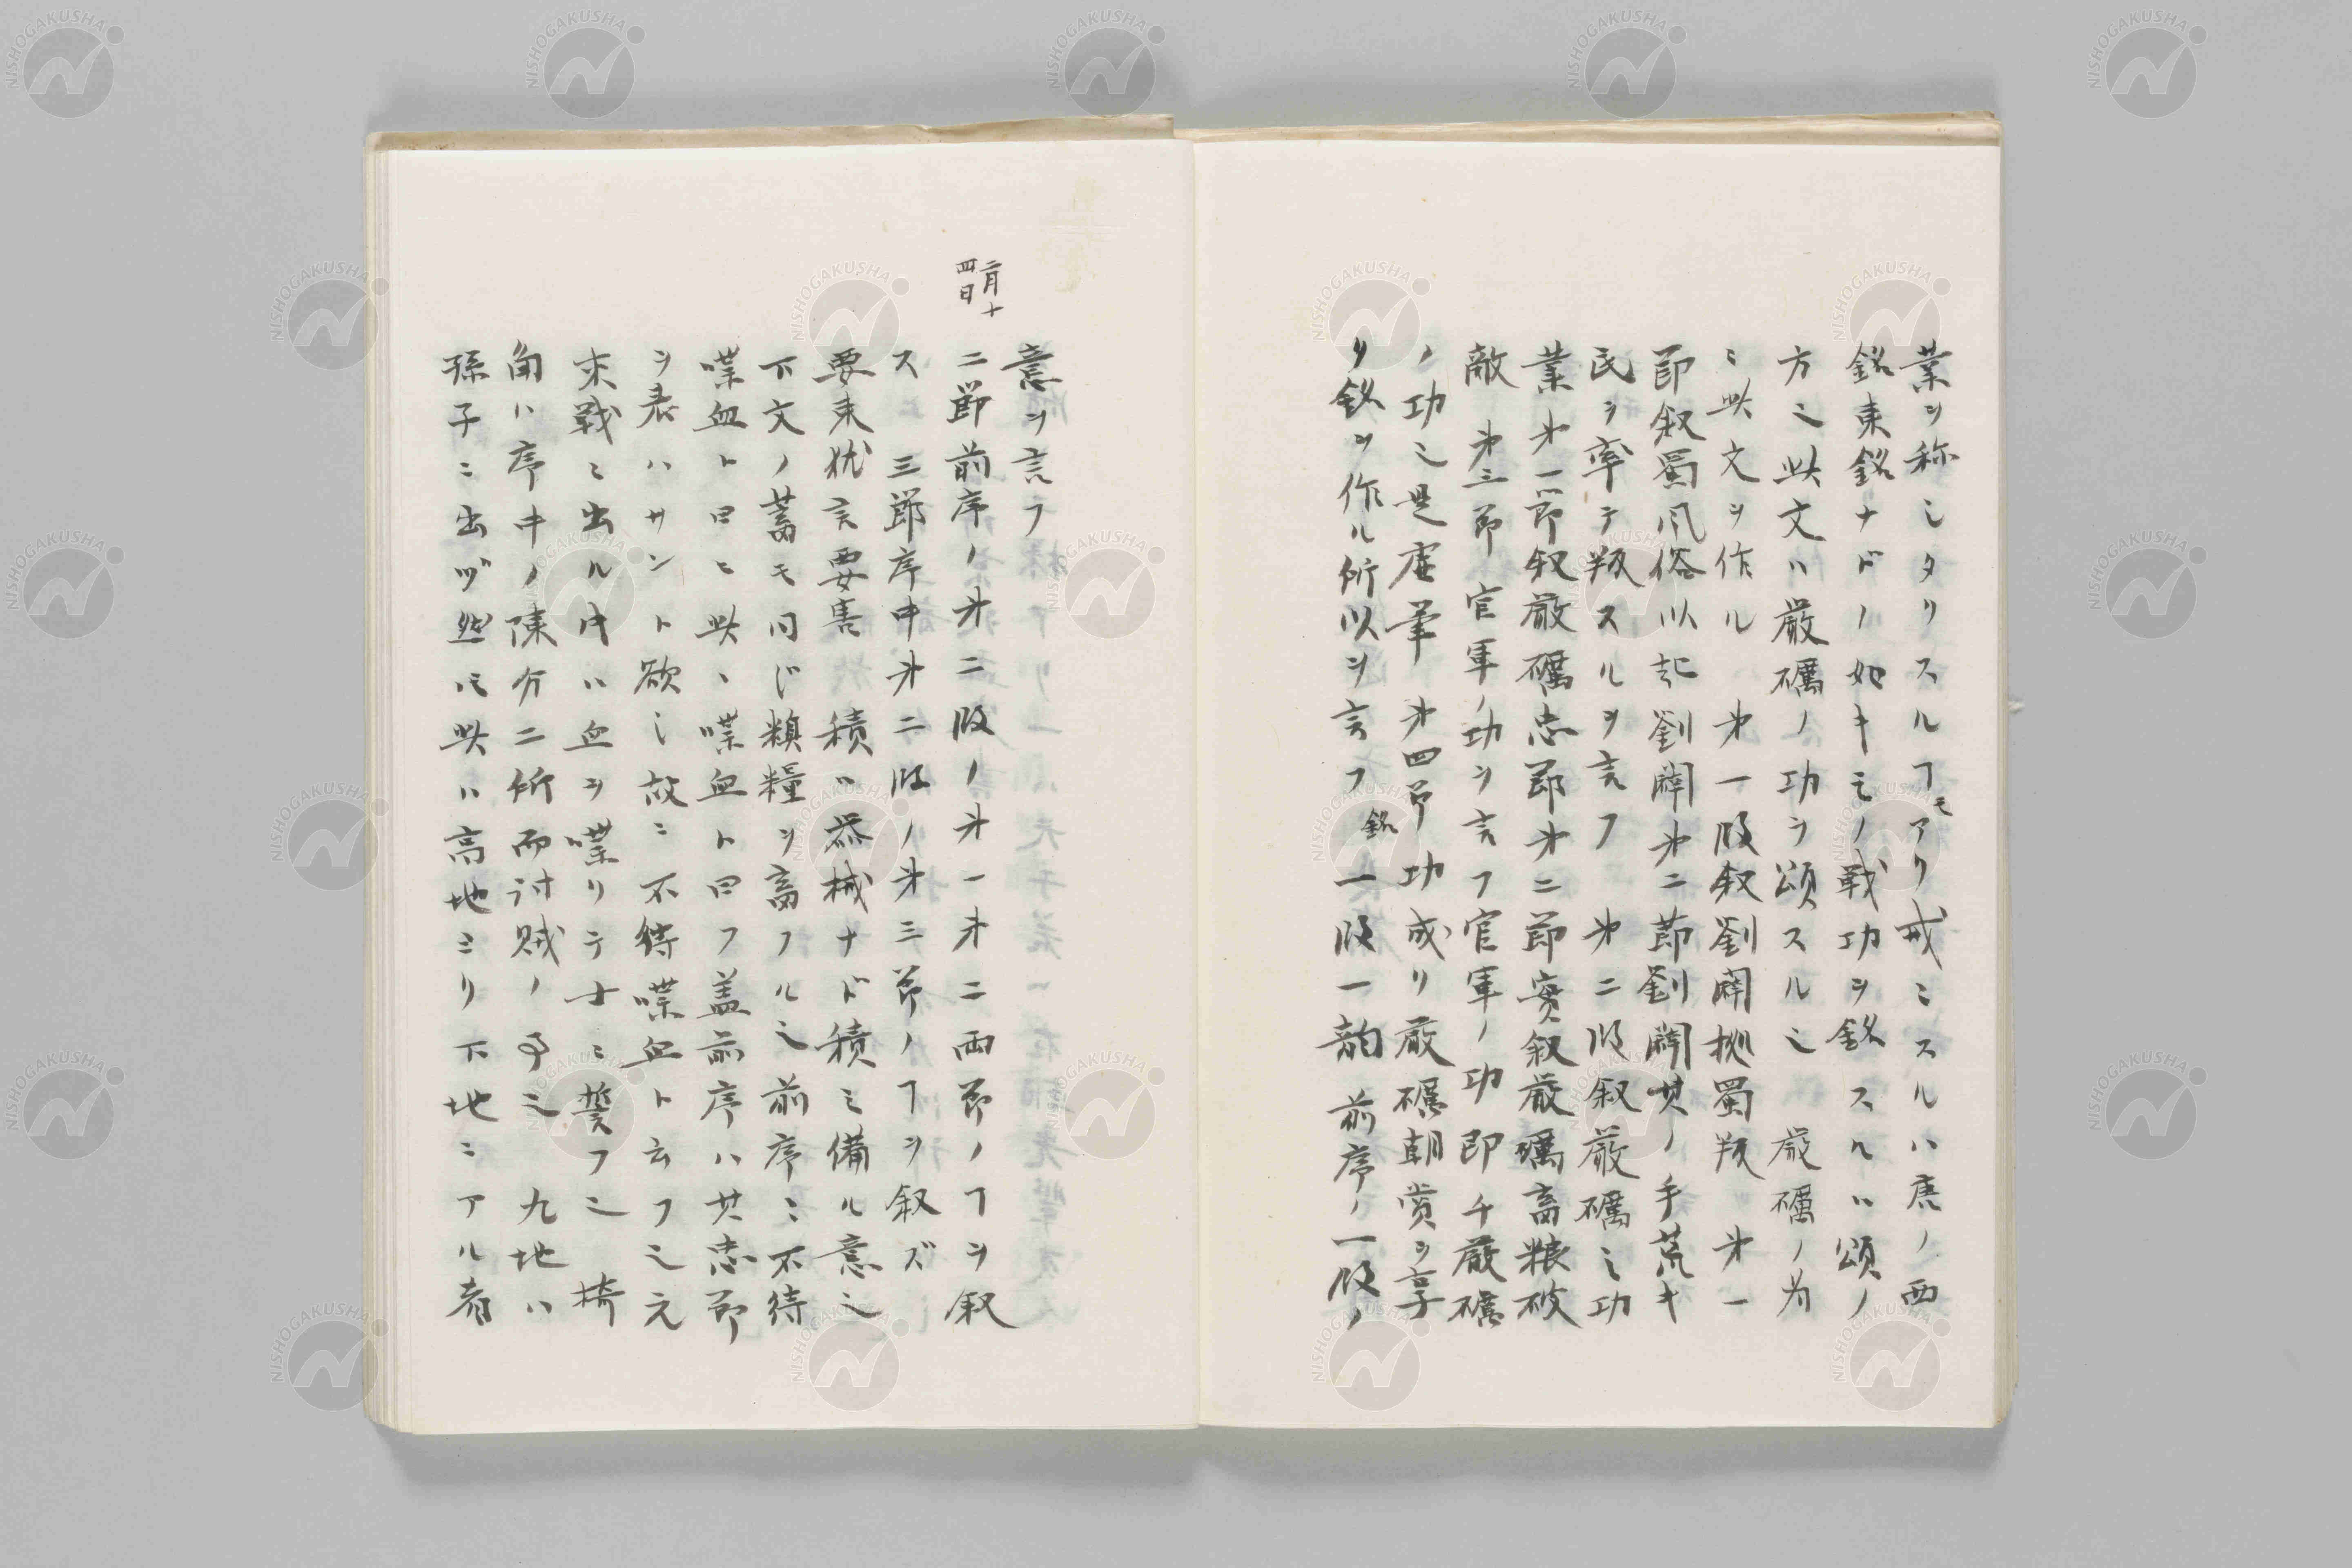 業ヲ称シタリスルヿモアリ戒ニスルハ唐ノ西
銘東銘ナドノ如キモノ戦功ヲ銘スルハ頌ノ
方也此文ハ厳礪ノ功ヲ頌スル也 厳礪ノ為
ニ此文ヲ作ル 㐧一段叙劉闢拠蜀叛 㐧一
節叙蜀風俗以起劉闢㐧二節劉闢其ノ手荒キ
民ヲ率テ叛スルヲ言フ 㐧二段叙厳礪之功
業㐧一節叙厳礪忠節㐧二節実叙厳礪畜粮破
敵 㐧三節 官軍ノ功ヲ言フ官軍ノ功即チ厳礪
ノ功也是虚筆 㐧四節 功成リ厳礪朝賞ヲ享
リ銘ヲ作ル所以ヲ言フ 銘一段一韵 前序ノ一段ノ
意ヲ言フ
二月十
四日
二節前序ノ㐧二段ノ㐧一㐧二両節ノヿヲ叙
ス 三節序中㐧二段ノ㐧三節ノヿヲ叙ズ
要束猶言要害 積ハ器械ナド積ミ備ル意也
下文ノ蓄モ同ジ糗糧ヲ畜フル也前序ニ不待
喋血ト曰ヒ此ハ喋血ト曰フ盖前序ハ其忠節
ヲ表ハサント欲シ故ニ不待喋血ト云フ也元
来戦ニ出ル時ハ血ヲ喋リテ士ニ誓フ也 掎
角ハ序中ノ陳分二所而討賊ノ事也 九地ハ
孫子ニ出ヅ然ﾄﾓ此ハ高地ヨリ下地ニアル者
NISHOGAKUSHA